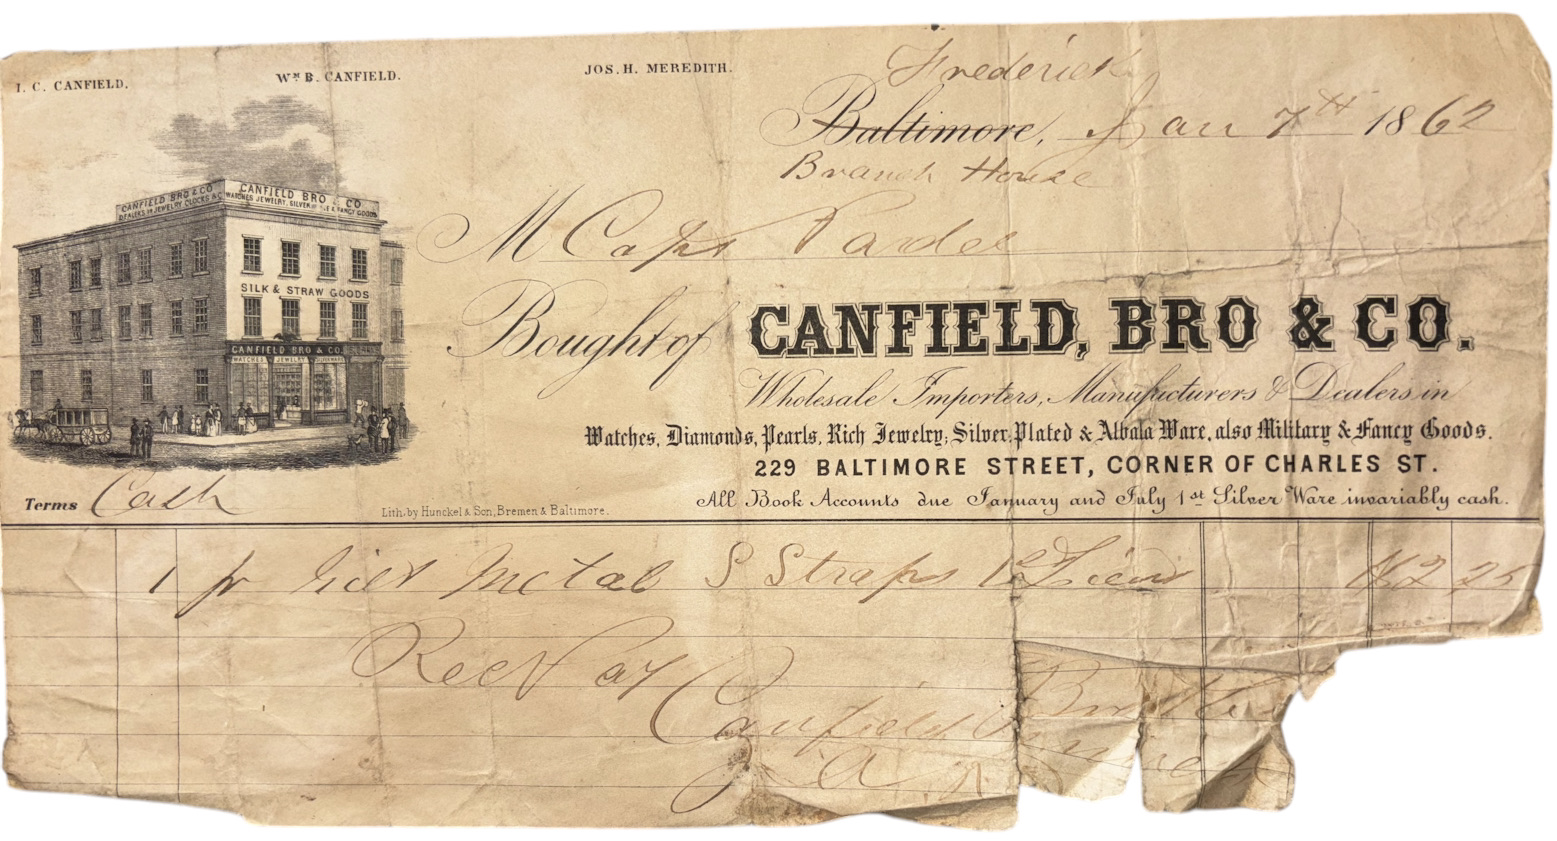 I. C. CANFIELD. WM B. CANFIELD. JOS. H. MEREDITH.
Frederick
Baltimore, Jan 7th 1862
Branch House
M Capt
CANFIELD BRO & CO
DEALERS IN JEWELRY CLOCKS &C
CANFIELD BRO & CO
WATCHES JEWELRY, SILVER & FANCY GOODS
SILK & STRAW GOODS
CANFIELD BRO & CO.
WATCHES JEWELRY
Bought of CANFIELD, BRO & CO.
Wholesale Importers, Manufacturers & Dealers in
Watches, Diamonds, Pearls, Rich Jewelry, Silver, Plated & Albata Ware, also Military & Fancy Goods.
229 BALTIMORE STREET, CORNER OF CHARLES ST.
All Book Accounts due January and July 1st Silver Ware invariably cash.
Terms Cash
Lith. by Hunckel & Son, Bremen & Baltimore.
1 pr Gilt Metal S Straps 1st Lieut 2 25
Recd pay
Canfield Bro &